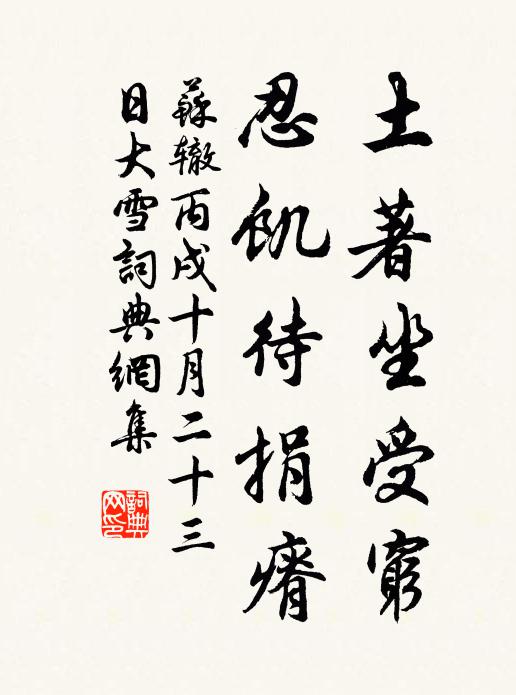 土著坐受窮
忍飢待捐瘠
蘇辙丙戌十月二十三
日大雪詞典網集
詞典网印